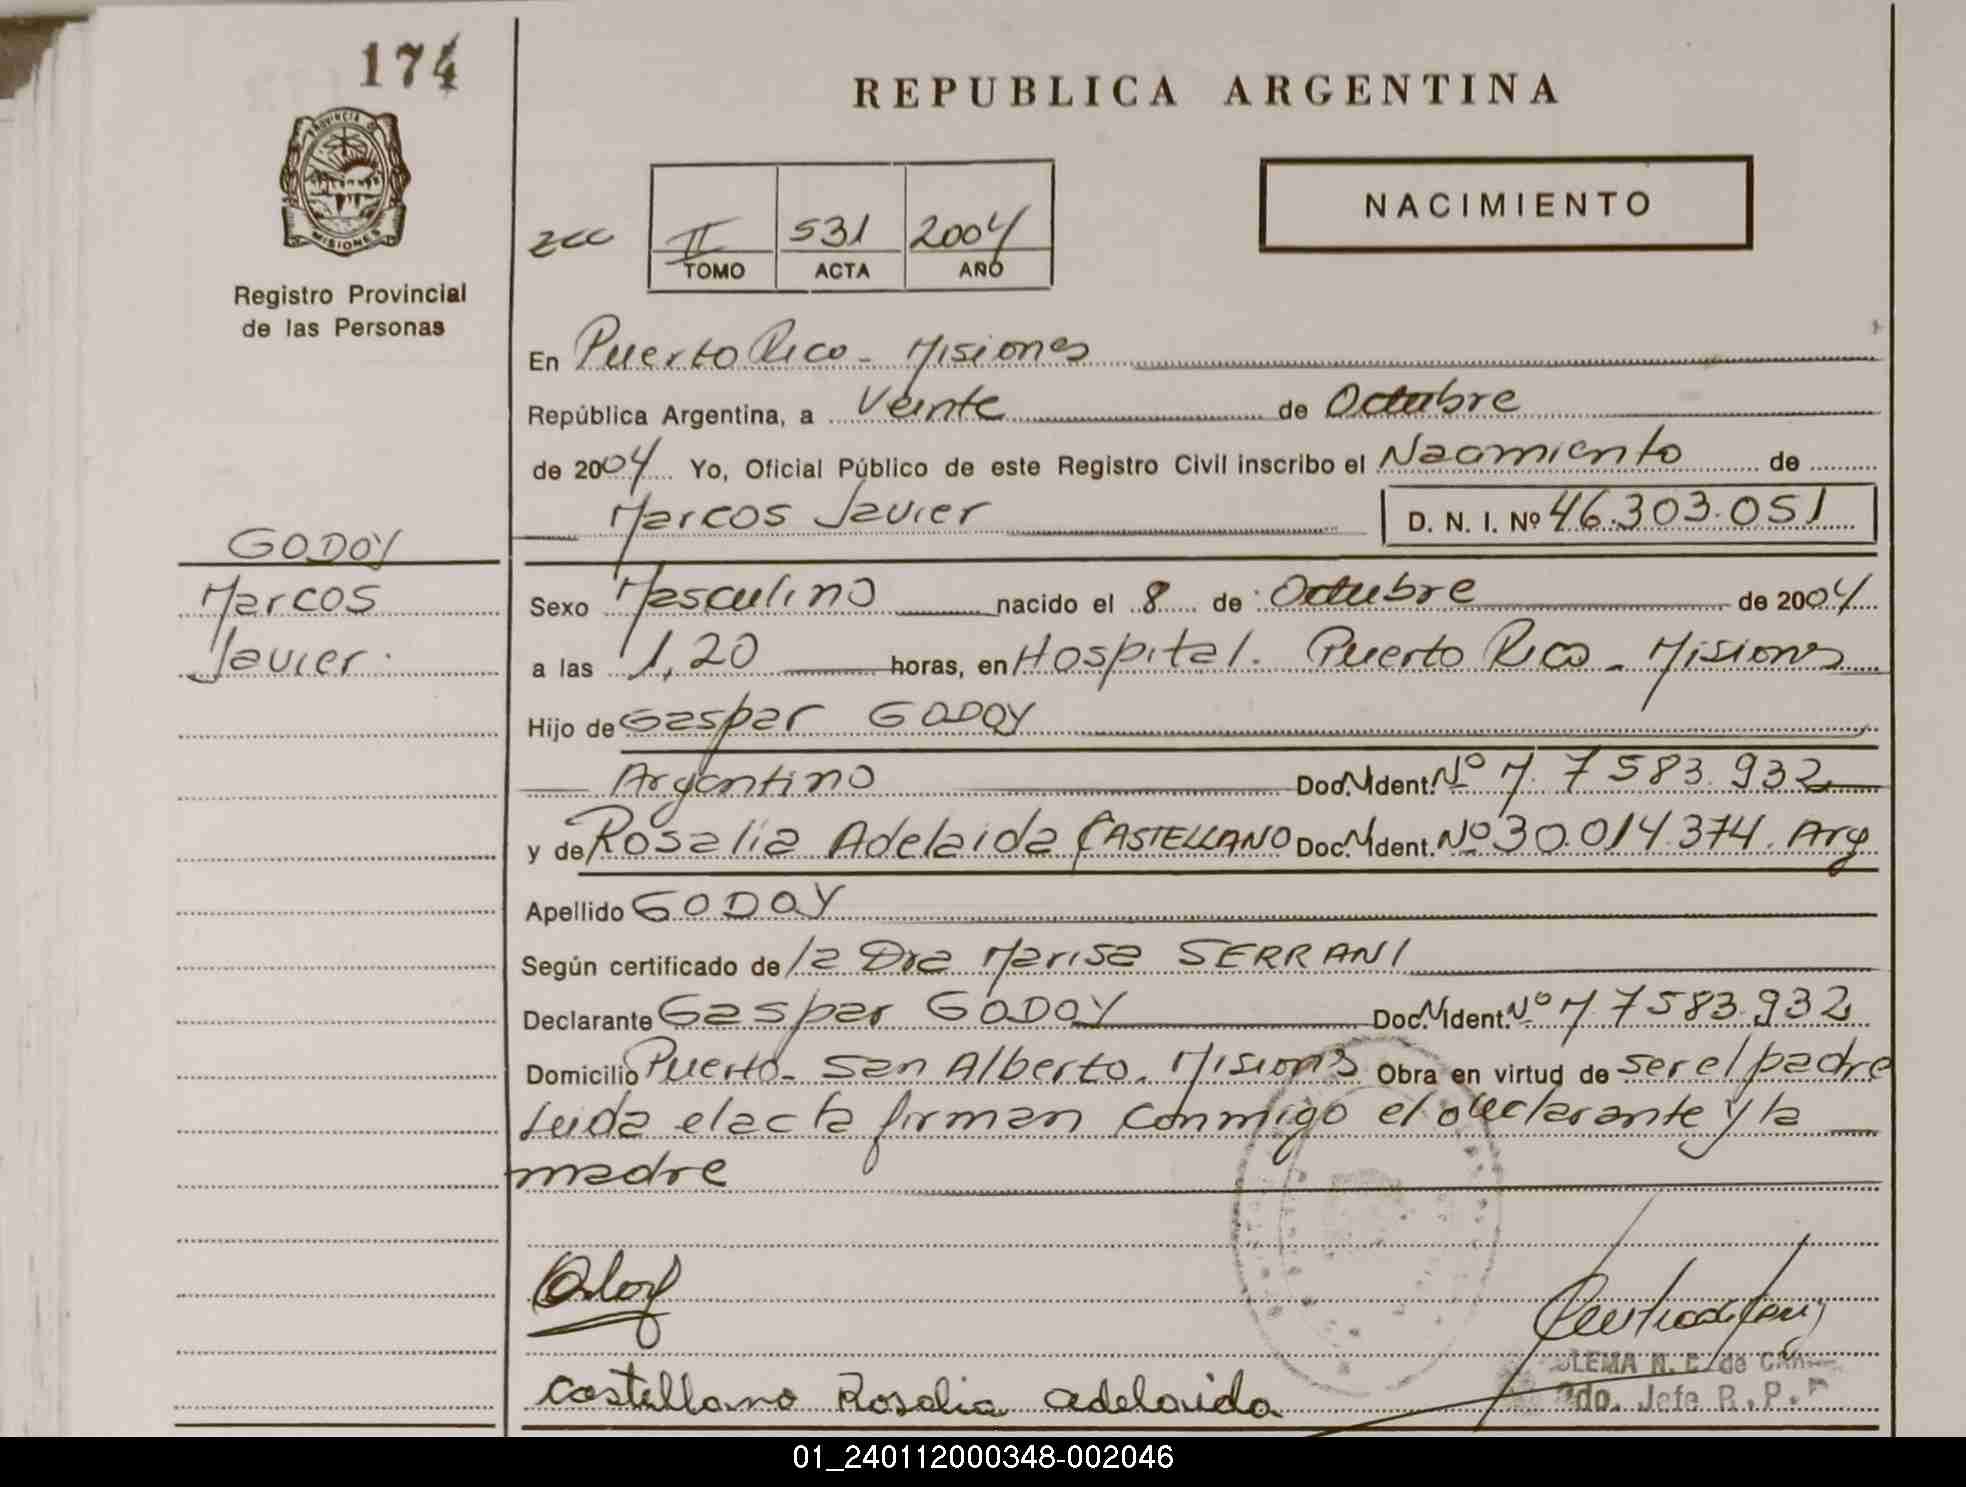 174
REPUBLICA ARGENTINA
PROVINCIA DE
MISIONES
Registro Provincial
de las Personas
NACIMIENTO
II 531 2004
TOMO ACTA AÑO
En Puerto Rico - Misiones
República Argentina, a Veinte de Octubre
de 2004 Yo, Oficial Público de este Registro Civil inscribo el Nacimiento de
Marcos Javier D. N. I. Nº 46.303.051
GODOY
Marcos
Javier.
Sexo Masculino nacido el 8 de Octubre de 2004
a las 1,20 horas, en Hospital. Puerto Rico - Misiones
Hijo de Gaspar GODOY
Argentino Doc. N Ident. Nº M. 7583.932
y de Rosalia Adelaida CASTELLANO Doc. N Ident. Nº 30.014.374. Arg
Apellido GODOY
Según certificado de la Dra Marisa SERRANI
Declarante Gaspar GODOY Doc. N Ident. Nº M 7583.932
Domicilio Puerto - San Alberto. Misiones Obra en virtud de ser el padre
Leida el acta firman conmigo el declarante y la
madre
Castellano Rosalia adelaida
N. E. de
Jefe R. P.
01_240112000348-002046